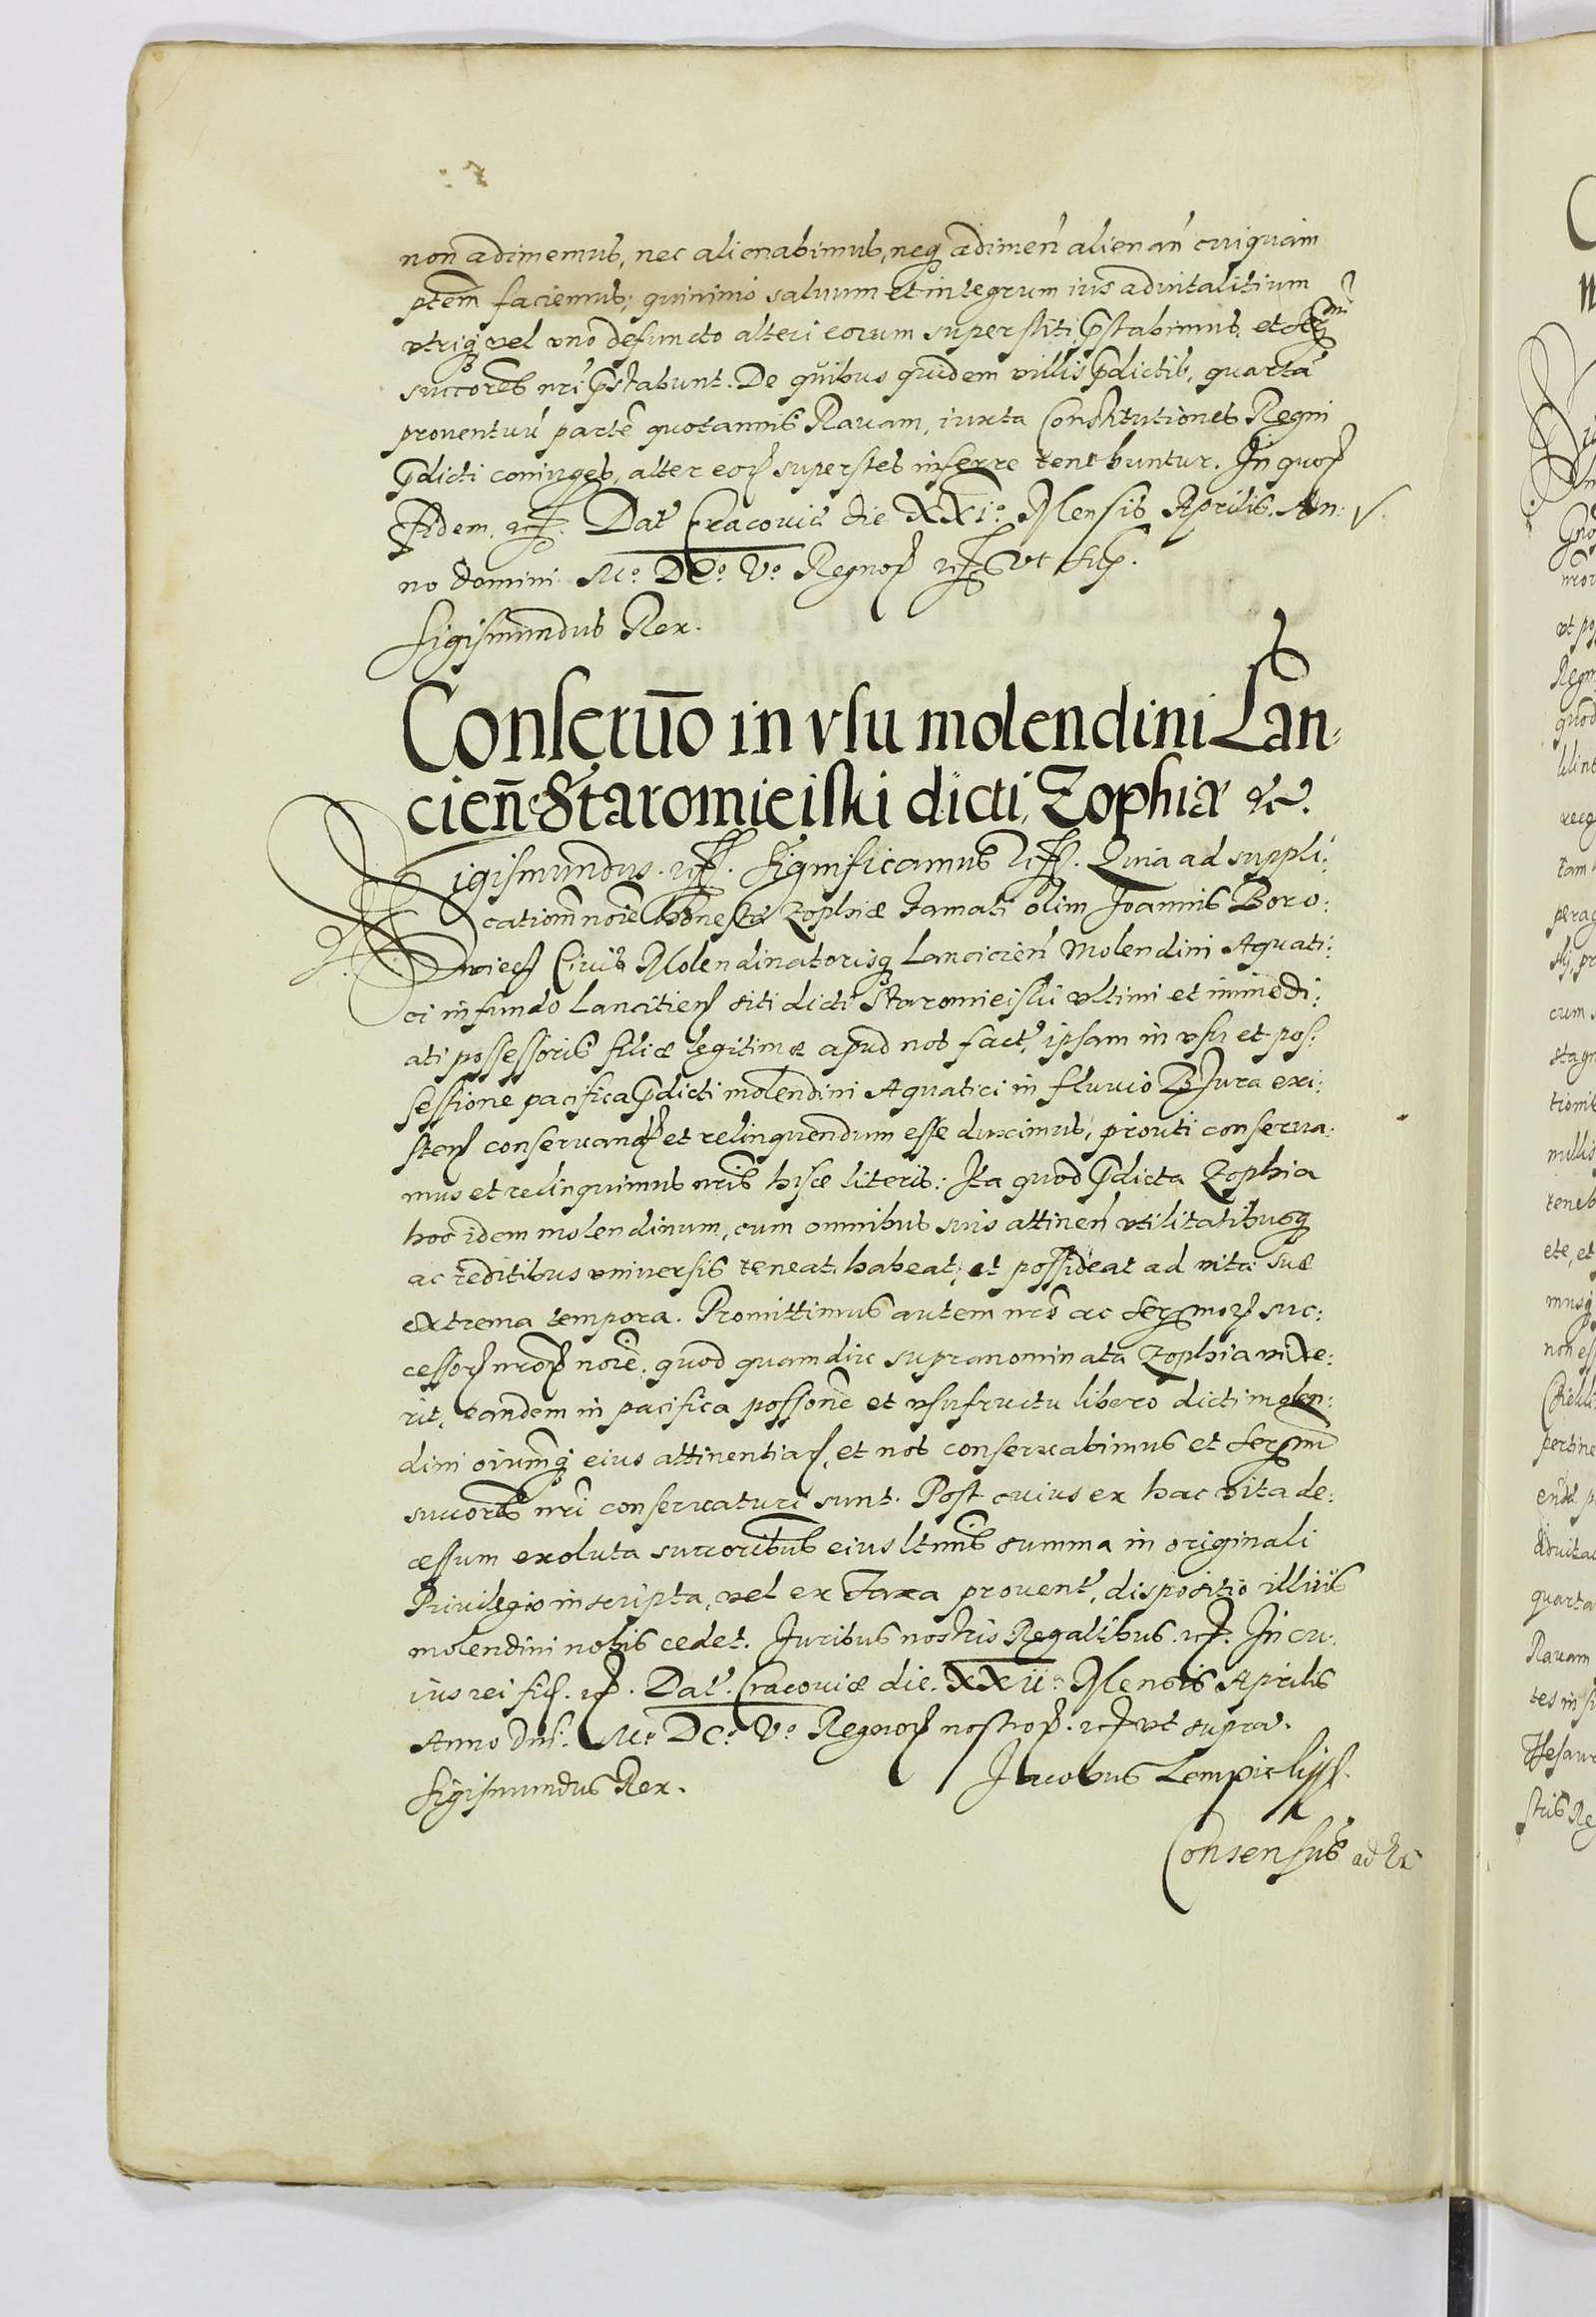 non adimemus, nec alienabimus, neq adimen̄ alienan̄ cuiquam
ptēm faciemus; quinimo salvum et integrum ius advitalitium
utriq vel uno defuncto alteri eorum superstiti pstabimus, et Sermi
succores nri pstabunt. De quibus quidem villis pdictis, quartā
proventuū partē quotannis Ravam, iuxta Constitutiones Regni
pdicti coniuges, alter eorꝝ superstes inferre tenebuntur. In quorꝝ
Fidem. etc. Dat Cracoviæ die XXIo. Mensis Aprilis. An:
no domini Mo. DCo. Vo. Regnorꝝ etc ut sup.
Sigismundus Rex.
Conseruo in vsu molendini Lan
cien̄ Staromieiski dicti, Zophiæ etc.
Sigismundus. etc. Significamus etc. Quia ad suppli:
cationm noie honestæ Zophiæ Famatī olim Joannis Boro:
Civis Molendinatorisq Lancicien̄ Molendini Aquati:
ci in fundo Lancitien siti dicti Staromieiski ultimi et immedi:
ati possessoris filiæ legitimæ apud nos fact, ipsam in usu et pos:
sessione pacifica pdicti molendini Aquatici in fluvio Bzura exi:
sten conservand et relinquendum esse duximus, prouti conserva:
mus et relinquimus nris hisce literis: Ita quod pdicta Zophia
hoc idem molendinum, cum omnibus suis attinen̄ utilitatibusq
ac reditibus universis teneat, habeat, et possideat ad vitæ suæ
extrema tempora. Promittimus autem nro ac Sermorꝝ suc:
cessorꝝ nrorꝝ noie, quod quamdiu supranominata Zophia vixe:
rit, eandem in pacifica possione et usufructu libero dicti molen:
dini oiumq eius attinentiarꝝ, et nos conservabimus et Sermi
succores nri conservaturi sunt. Post cuius ex hac vita de:
cessum exoluta succoribus eius ltimis summa in originali
Privilegio inscripta, vel ex Taxa provent, dispositio illius
molendini nobis cedet. Juribus nostris Regalibus. etc. In cu:
ius rei fid. etc. Dat. Cracoviæ die. XXII. Mensis Aprilis
Anno Dni. Mo. DCo. Vo. Regnorꝝ nostrorꝝ. etc ut supra.
Sigismundus Rex. Jacobus
Consensus ad